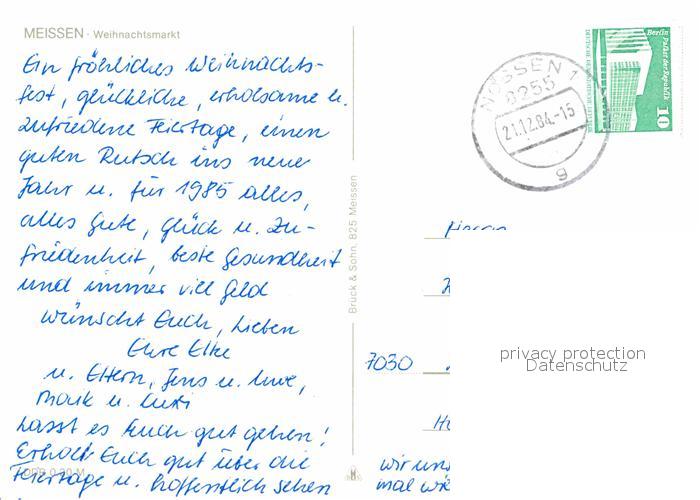 MEISSEN · Weihnachtsmarkt
Ein fröhliches Weihnachts-
fest, glückliche, erholsame u.
zufriedene Feiertage, einen
guten Rutsch ins neue
Jahr u. für 1985 alles,
alles Gute, Glück u. Zu-
friedenheit, beste Gesundheit
und immer viel Geld
wünscht Euch, Lieben
Eure Elke
u. Eltern, Jens u. Uwe,
Maik u.
Lasst es Euch gut gehen!
Erholt Euch gut über die
Feiertage u. hoffentlich sehen
wir uns
mal
7030
Brück & Sohn, 825 Meissen
NOSSEN 1
8255
21.12.84.-15
g
Berlin Palast der Republik
10
privacy protection
Datenschutz